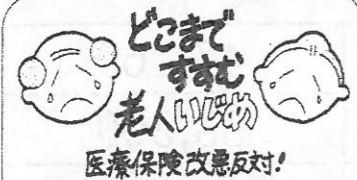 どこまで
すすむ
老人いじめ
医療保険改悪反対!